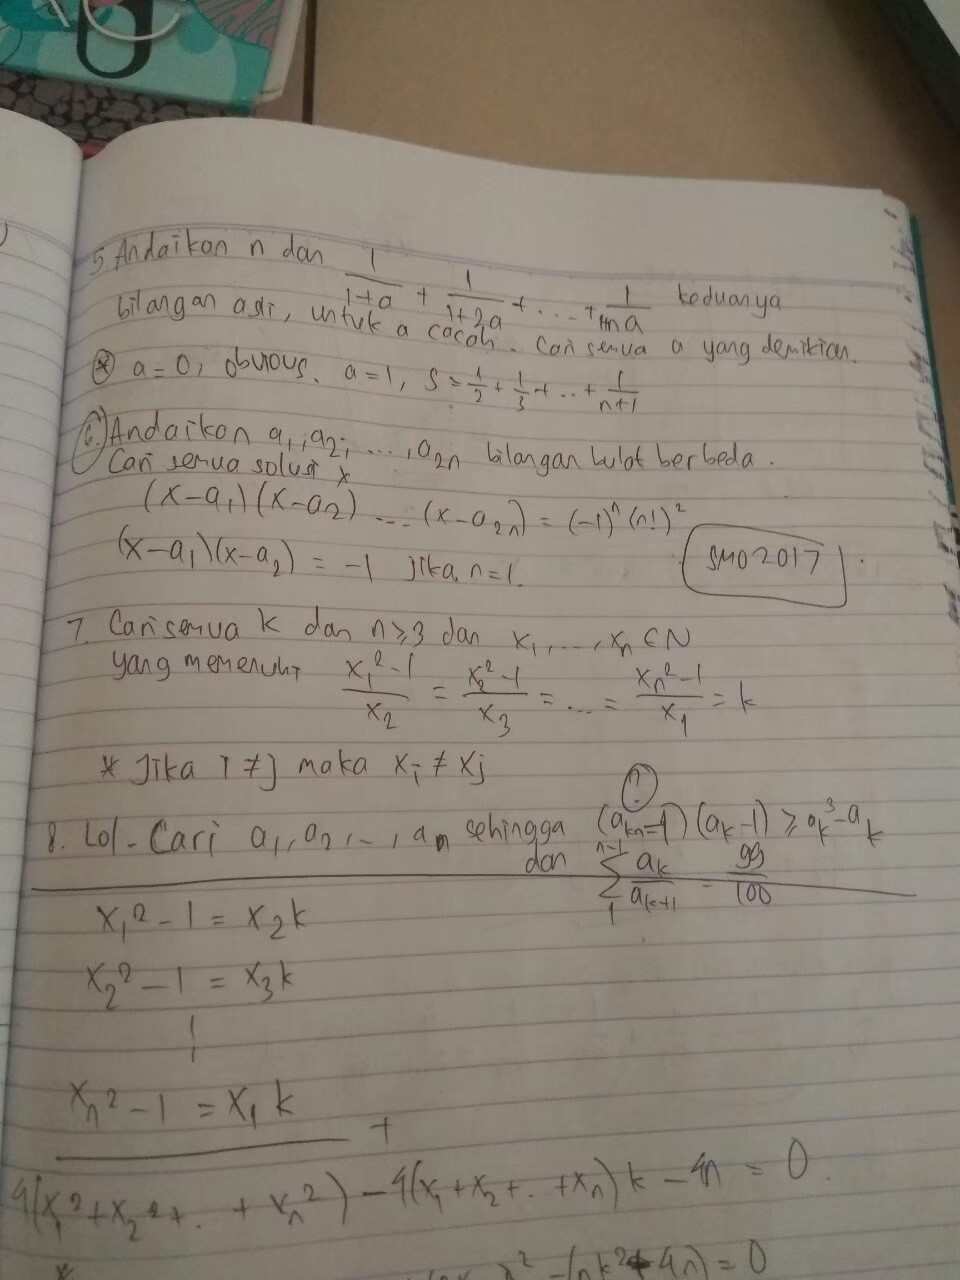 5. Andaikan n dan 1/(1+a) + 1/(1+2a) + ... + 1/(1+na) keduanya
bilangan asli, untuk a cocok. Cari semua a yang demikian.
⊛ a=0, obvious. a=1, S = 1/2 + 1/3 + ... + 1/(n+1)
6. Andaikan a₁, a₂, ..., a₂ₙ bilangan bulat berbeda.
Cari semua solusi x
(x-a₁)(x-a₂) ... (x-a₂ₙ) = (-1)ⁿ (n!)²
(x-a₁)(x-a₂) = -1 jika n=1.
SMO 2017
7. Cari semua k dan n≥3 dan x₁, ..., xₙ ∈ N
yang memenuhi (x₁²-1)/x₂ = (x₂²-1)/x₃ = ... = (xₙ²-1)/x₁ = k
* Jika i ≠ j maka xᵢ ≠ xⱼ
8. Lol. Cari a₁, a₂, .., aₙ sehingga (aₖ₊₁-1)(aₖ-1) ≥ aₖ³-aₖ
dan Σ₁ⁿ⁻¹ aₖ/aₖ₊₁ = 99/100
x₁² - 1 = x₂k
x₂² - 1 = x₃k
xₙ² - 1 = x₁k
+
4(x₁²+x₂²+..+xₙ²) - 4(x₁+x₂+..+xₙ)k - 4n = 0.
)² - (nk²+4n) = 0